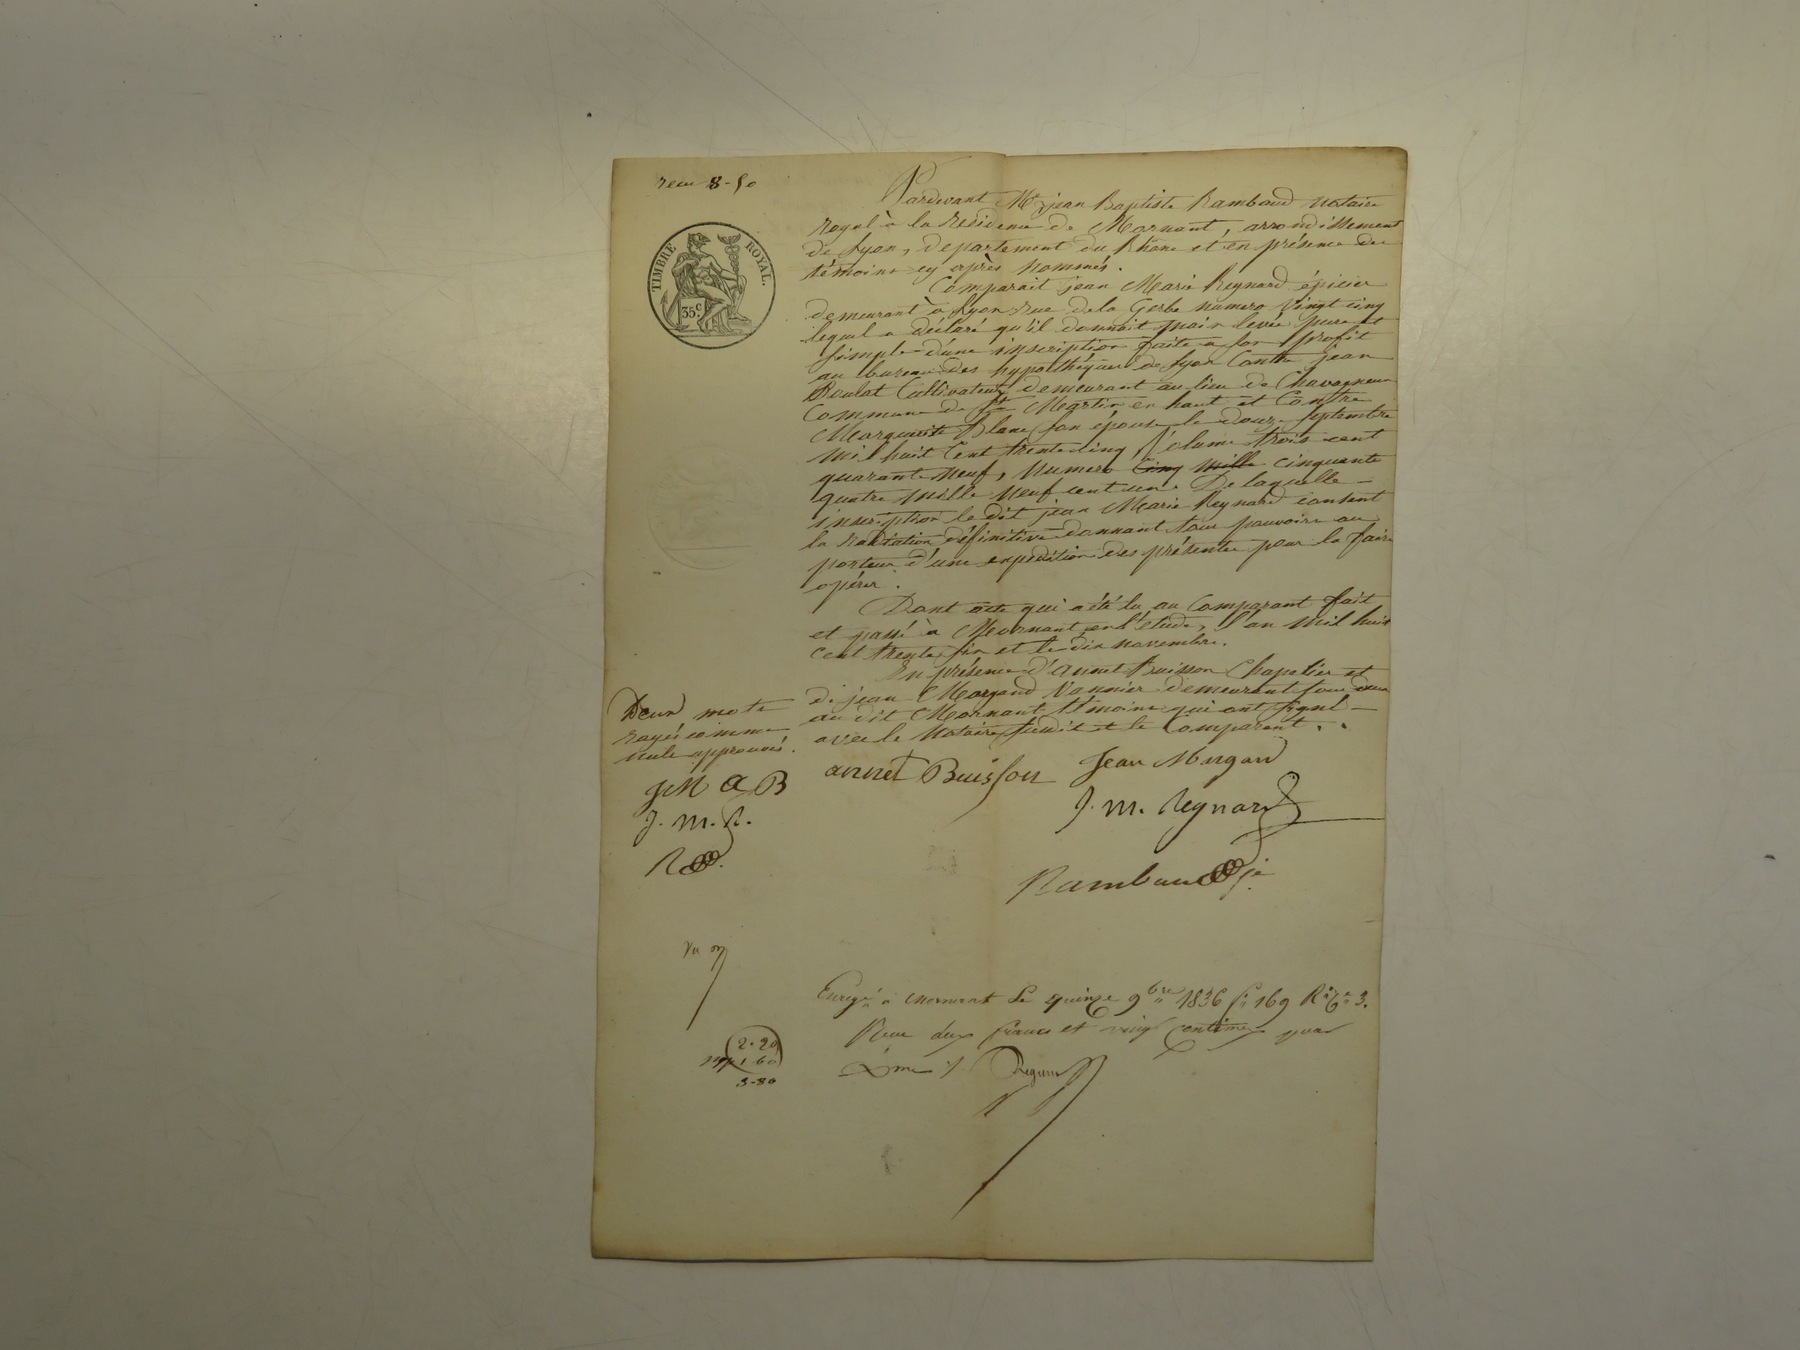 recu 8-50
TIMBRE ROYAL.
35 c
Pardevant Me jean Baptiste Rambaud Notaire
royal à la residence de Mornant, arrondissement
de Lyon, departement du Rhône et en présence des
témoins cy après nommés.
Comparait jean Marie Reynard épicier
demeurant à Lyon rue de la Gerbe numero vingt cinq
lequel a déclaré qu'il donnait main levée pure et
simple d'une inscription faite a son profit
au bureau des hypothéques de Lyon Contre jean
Boulat Cultivateur demeurant au lieu de Chavagneux
Commune de St Martin en haut et Contre
Marguerite Blanc son épouse le douze septembre
mil huit Cent trente cinq, Volume trois cent
quarante neuf, numero cinq mille cinquante
quatre mille neuf cent un. De laquelle
inscription le dit jean Marie Reynard consent
la radiation définitive donnant tous pouvoirs au
porteur d'une expédition des présentes pour la faire
opérer.
Dont acte qui a été lu au Comparant fait
et passé à Mornant en l'étude, l'an mil huit
cent trente six et le dix novembre.
En présence d'annet Buisson Chapelier et
de jean Morgand Vannier demeurant tous deux
au dit Mornant témoins qui ont signé
avec le Notaire susdit et le Comparant.
Deux mots
rayés comme
nuls approuvés.
annet Buisson Jean Morgand
JM a B
J. M. Reynard
J. M. R.
Rambaud
R
Vu
Enregé à Mornant Le quinze 9bre 1836 fo 169 Ro Ce 3.
Recu deux francs et vingt centimes pour
Dme
2.20
1.60
3-80